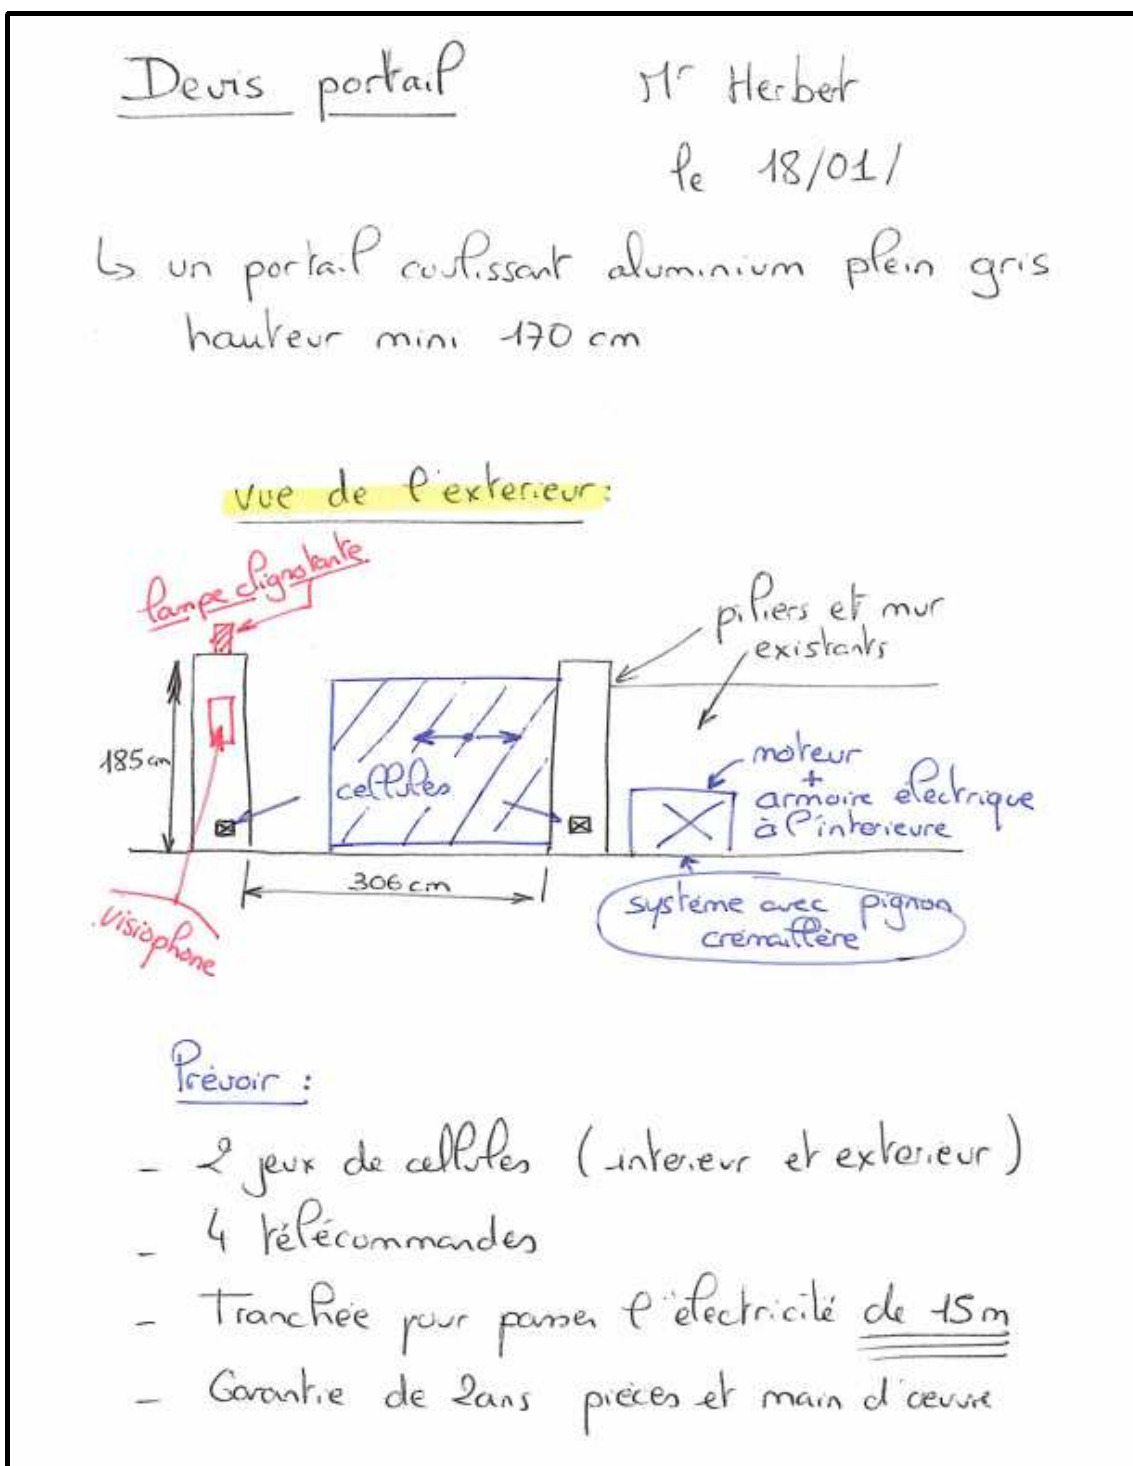 Devis portail
Mr Herbert
le 18/01/
↳ un portail coulissant aluminium plein gris
hauteur mini 170 cm
vue de l'exterieur :
lampe clignotante
piliers et mur
existants
185 cm
cellules
moteur
+
armoire électrique
à l'interieure
306 cm
système avec pignon
crémaillère
visiophone
Prévoir :
- 2 jeux de cellules (interieur et exterieur)
- 4 télécommandes
- Tranchée pour passer l'électricité de 15m
- Garantie de 2ans pièces et main d'œuvre